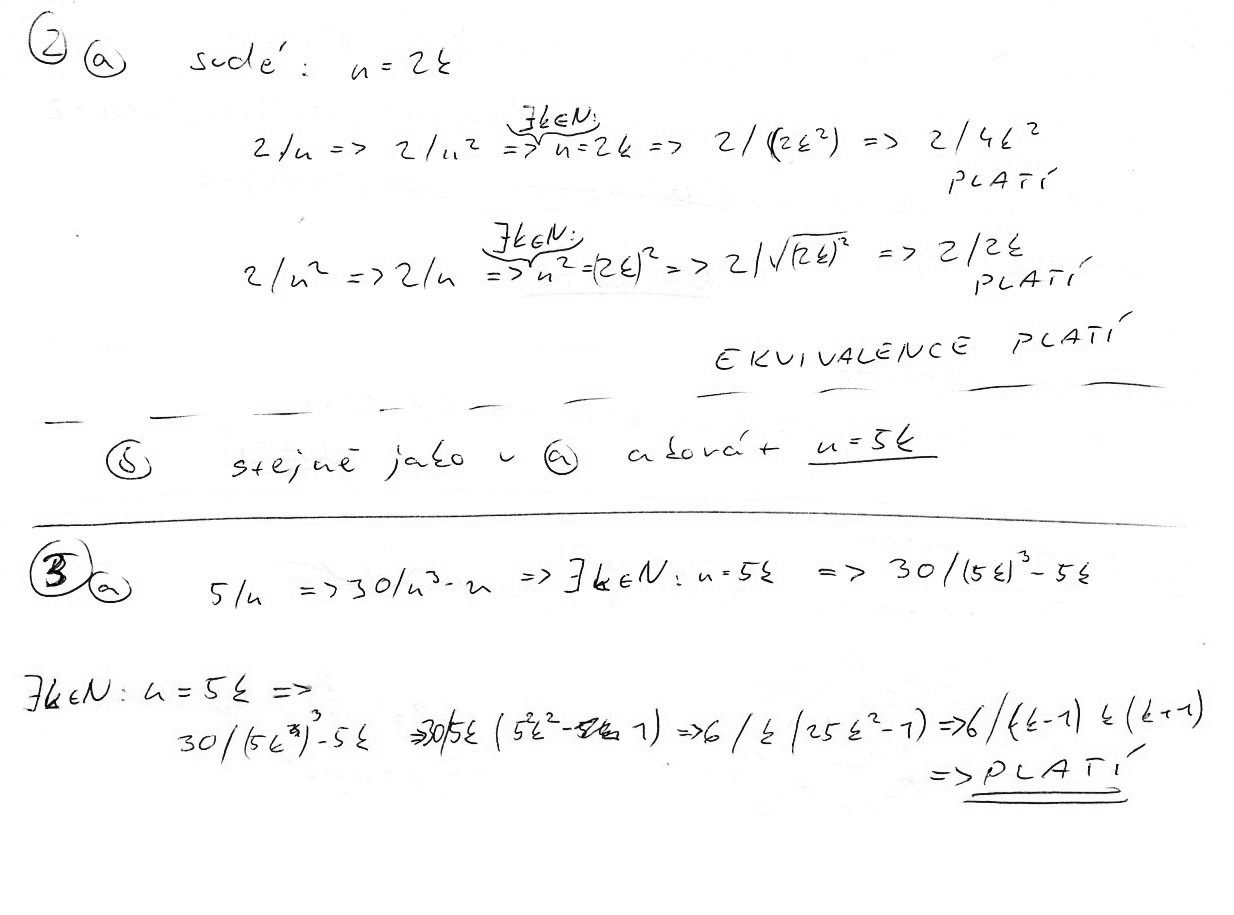 2 a sudé: n = 2k
2/n => 2/n² => ∃k∈N: n=2k => 2/(2k²) => 2/4k²
PLATÍ
2/n² => 2/n => ∃k∈N: n²=(2k)² => 2/√(2k)² => 2/2k
PLATÍ
EKVIVALENCE PLATÍ
b stejně jako v a n=5k
3 a 5/n => 30/n³-n => ∃k∈N: n=5k => 30/(5k)³-5k
∃k∈N: n=5k =>
30/(5k)³-5k => 30/5k(5²k²-1) => 6/k(25k²-1) => 6/(k-1)k(k+1)
=> PLATÍ